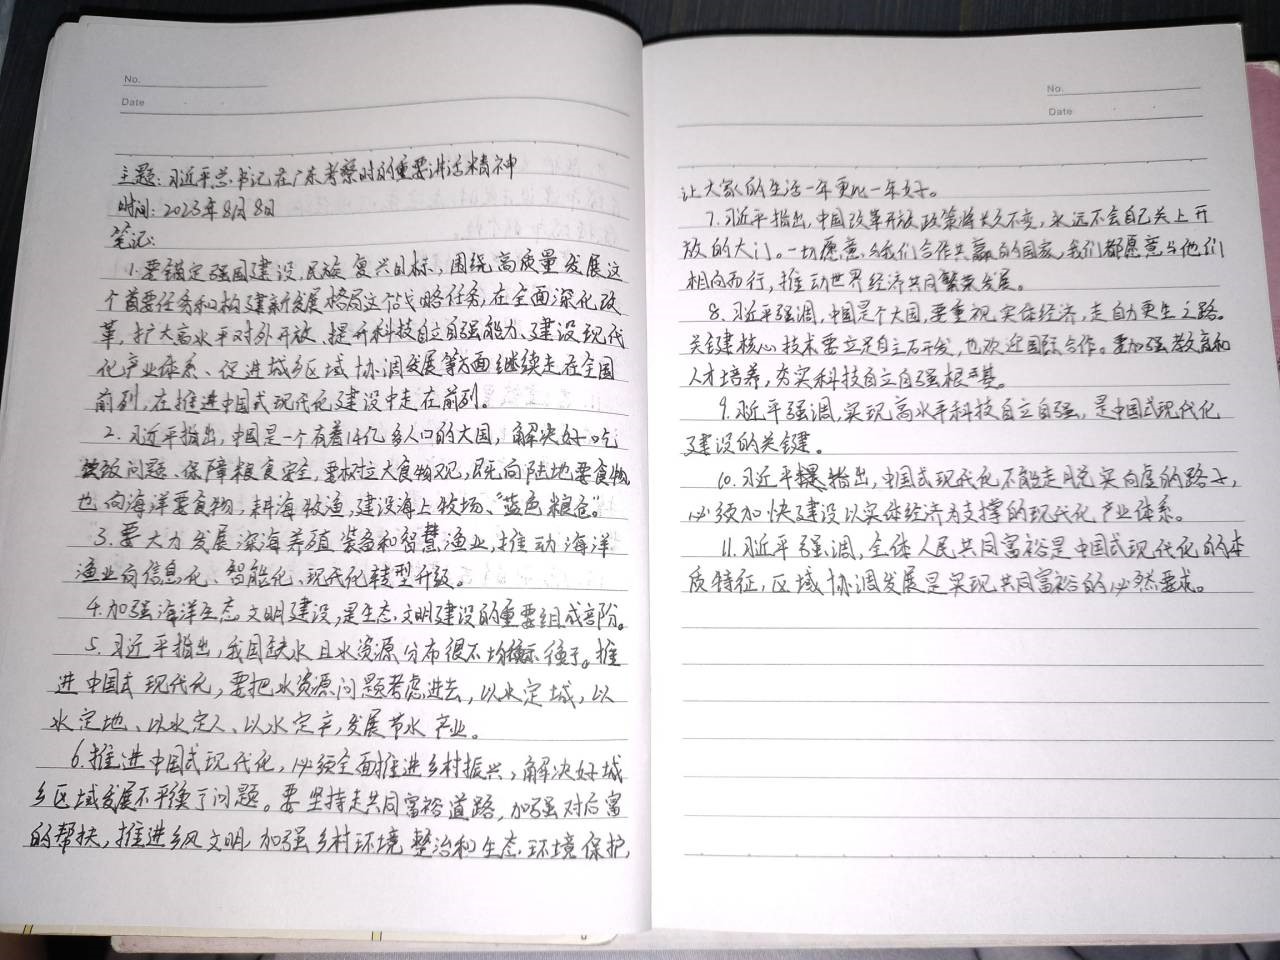 No.
Date
主题:习近平总书记在广东考察时的重要讲话精神
时间:2023年8月8日
笔记:
1.要锚定强国建设、民族复兴目标,围绕高质量发展这
个首要任务和构建新发展格局这个战略任务,在全面深化改
革、扩大高水平对外开放、提升科技自立自强能力、建设现代
化产业体系、促进城乡区域协调发展等方面继续走在全国
前列,在推进中国式现代化建设中走在前列。
2.习近平指出,中国是一个有着14亿多人口的大国,解决好吃
饭问题、保障粮食安全,要树立大食物观,既向陆地要食物,
也向海洋要食物,耕海牧渔,建设海上牧场、“蓝色粮仓”。
3.要大力发展深海养殖装备和智慧渔业,推动海洋
渔业向信息化、智能化、现代化转型升级。
4.加强海洋生态文明建设,是生态文明建设的重要组成部分。
5.习近平指出,我国缺水且水资源分布很不均衡。推
进中国式现代化,要把水资源问题考虑进去,以水定城,以
水定地、以水定人、以水定产,发展节水产业。
6.推进中国式现代化,必须全面推进乡村振兴,解决好城
乡区域发展不平衡问题。要坚持走共同富裕道路,加强对后富
的帮扶,推进乡风文明,加强乡村环境整治和生态环境保护,
No.
Date
让大家的生活一年更比一年好。
7.习近平指出,中国改革开放政策将长久不变,永远不会自己关上开
放的大门。一切愿意与我们合作共赢的国家,我们都愿意与他们
相向而行,推动世界经济共同繁荣发展。
8.习近平强调,中国是个大国,要重视实体经济,走自力更生之路。
关键核心技术要立足自主研发,也欢迎国际合作。要加强教育和
人才培养,夯实科技自立自强根基。
9.习近平强调,实现高水平科技自立自强,是中国式现代化
建设的关键。
10.习近平指出,中国式现代化不能走脱实向虚的路子,
必须加快建设以实体经济为支撑的现代化产业体系。
11.习近平强调,全体人民共同富裕是中国式现代化的本
质特征,区域协调发展是实现共同富裕的必然要求。